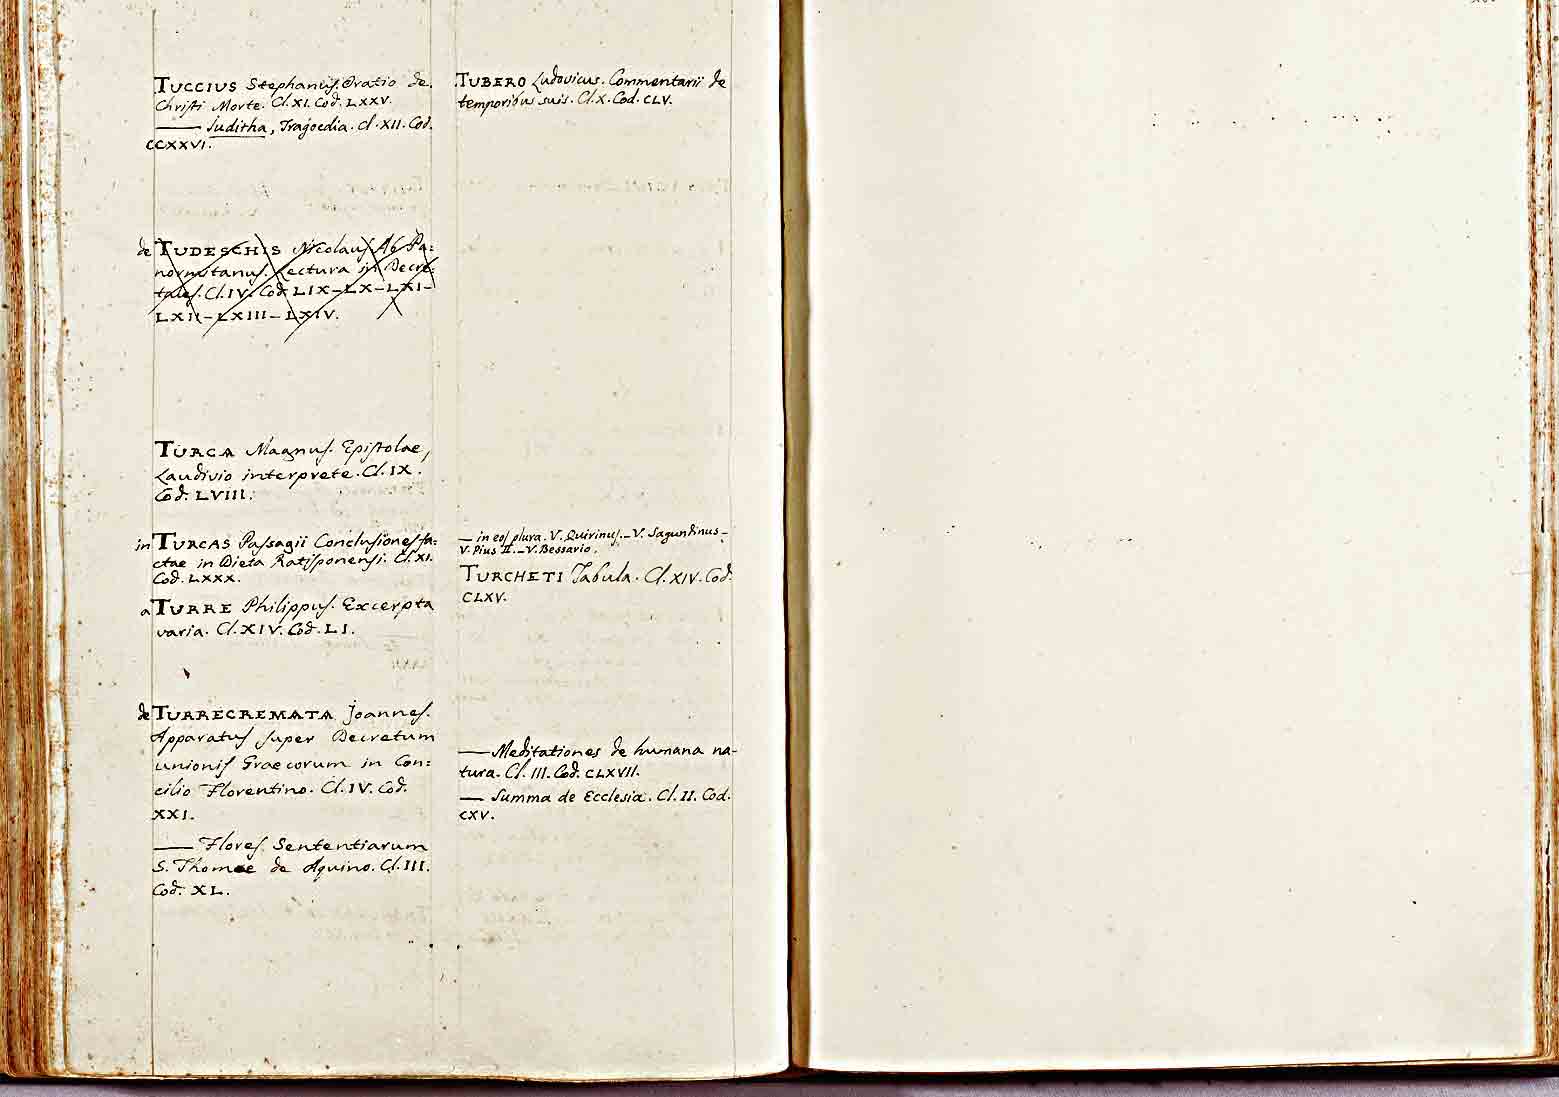 TUCCIUS Stephanus. Oratio de
Christi Morte. Cl. XI. Cod. LXXV.
—— Juditha, Tragoedia. Cl. XII. Cod.
CCXXVI.
de TUDESCHIS Nicolaus Ab. Pa=
normitanus. Lectura in Decre=
tales. Cl. IV. Cod. LIX–LX–LXI–
LXII–LXIII–LXIV.
TURCA Magnus. Epistolae,
Laudivio interprete. Cl. IX.
Cod. LVIII.
in TURCAS Passagii Conclusiones fa=
ctae in Dieta Ratisponensi. Cl. XI.
Cod. LXXX.
a TURRE Philippus. Excerpta
varia. Cl. XIV. Cod. LI.
de TURRECREMATA Joannes.
Apparatus super Decretum
unionis Graecorum in Con=
cilio Florentino. Cl. IV. Cod.
XXI.
—— Flores Sententiarum
S. Thomae de Aquino. Cl. III.
Cod. XL.
TUBERO Ludovicus. Commentarii de
temporibus suis. Cl. X. Cod. CLV.
— in eos plura. V. Quirinus. – V. Sagundinus –
V. Pius II. – V. Bessario.
TURCHETI Tabula. Cl. XIV. Cod.
CLXV.
—— Meditationes de humana na-
tura. Cl. III. Cod. CLXVII.
—— Summa de Ecclesia. Cl. II. Cod.
CXV.